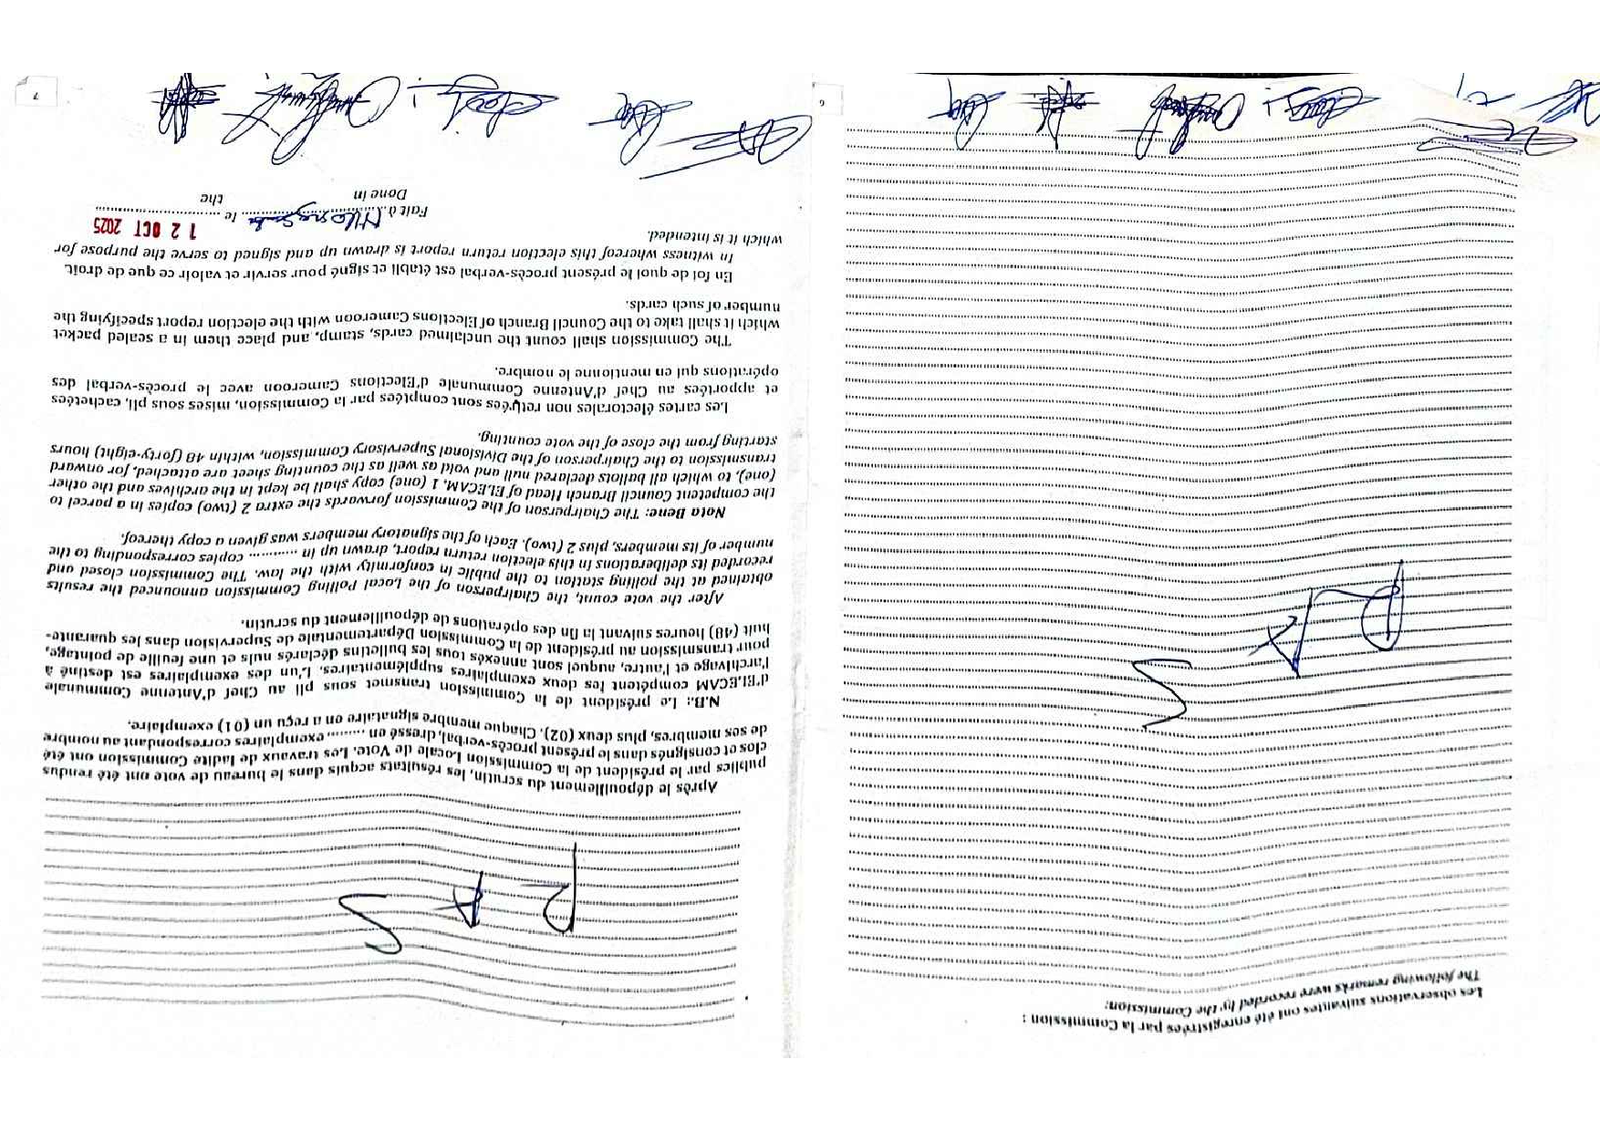 Les observations suivantes ont été enregistrées par la Commission :
The following remarks were recorded by the Commission:
R A S
6
R A S
Après le dépouillement du scrutin, les résultats acquis dans le bureau de vote ont été rendus
publics par le président de la Commission Locale de Vote. Les travaux de ladite Commission ont été
clos et consignés dans le présent procès-verbal, dressé en ......... exemplaires correspondant au nombre
de ses membres, plus deux (02). Chaque membre signataire en a reçu un (01) exemplaire.
N.B.: Le président de la Commission transmet sous pli au Chef d'Antenne Communale
d'ELECAM compétent les deux exemplaires supplémentaires. L'un des exemplaires est destiné à
l'archivage et l'autre, auquel sont annexés tous les bulletins déclarés nuls et une feuille de pointage,
pour transmission au président de la Commission Départementale de Supervision dans les quarante-
huit (48) heures suivant la fin des opérations de dépouillement du scrutin.
After the vote count, the Chairperson of the Local Polling Commission announced the results
obtained at the polling station to the public in conformity with the law. The Commission closed and
recorded its deliberations in this election return report, drawn up in .......... copies corresponding to the
number of its members, plus 2 (two). Each of the signatory members was given a copy thereof.
Nota Bene: The Chairperson of the Commission forwards the extra 2 (two) copies in a parcel to
the competent Council Branch Head of ELECAM. 1 (one) copy shall be kept in the archives and the other
(one), to which all ballots declared null and void as well as the counting sheet are attached, for onward
transmission to the Chairperson of the Divisional Supervisory Commission, within 48 (forty-eight) hours
starting from the close of the vote counting.
Les cartes électorales non retirées sont comptées par la Commission, mises sous pli, cachetées
et apportées au Chef d'Antenne Communale d'Elections Cameroon avec le procès-verbal des
opérations qui en mentionne le nombre.
The Commission shall count the unclaimed cards, stamp, and place them in a sealed packet
which it shall take to the Council Branch of Elections Cameroon with the election report specifying the
number of such cards.
En foi de quoi le présent procès-verbal est établi et signé pour servir et valoir ce que de droit.
In witness whereof this election return report is drawn up and signed to serve the purpose for
which it is intended.
Fait à le 12 OCT 2025
Done in the
7